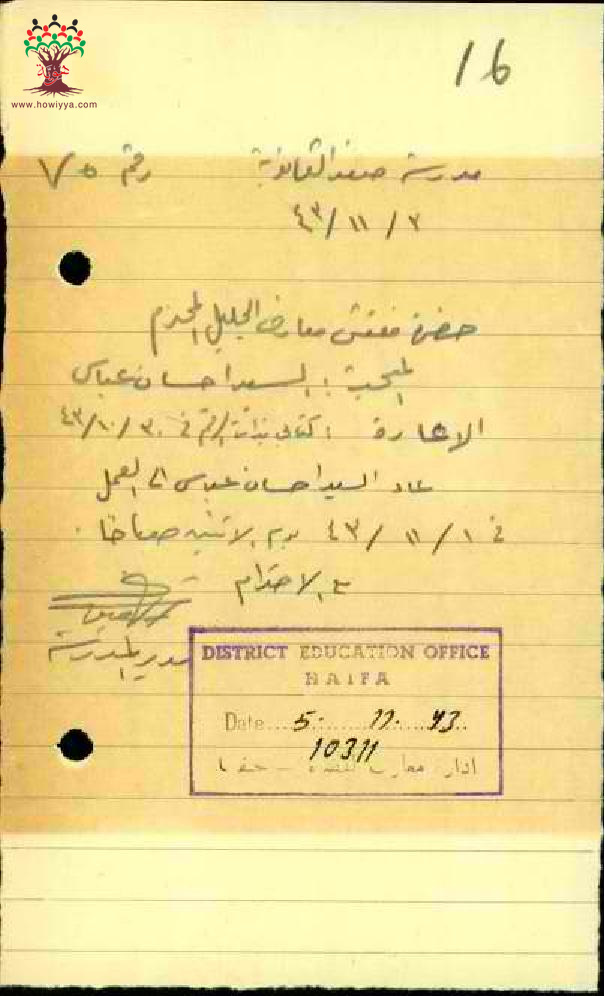 هوية
www.howiyya.com
16
مدرسة صفد الثانوية رقم ٧٥
٢ / ١١ / ٤٣
حضرة مفتش معارف الجليل المحترم
السيد احسان عباس
الاشارة : كتابي بذات الرقم في ٣٠ / ١٠ / ٤٣
عاد السيد احسان عباس الى العمل
في ١ / ١١ / ٤٣ يوم الاثنين صباحا .
مع الاحترام
مدير المدرسة
DISTRICT EDUCATION OFFICE
HAIFA
Date... 5. 11. 43.
10311
ادارة معارف اللواء - حيفا